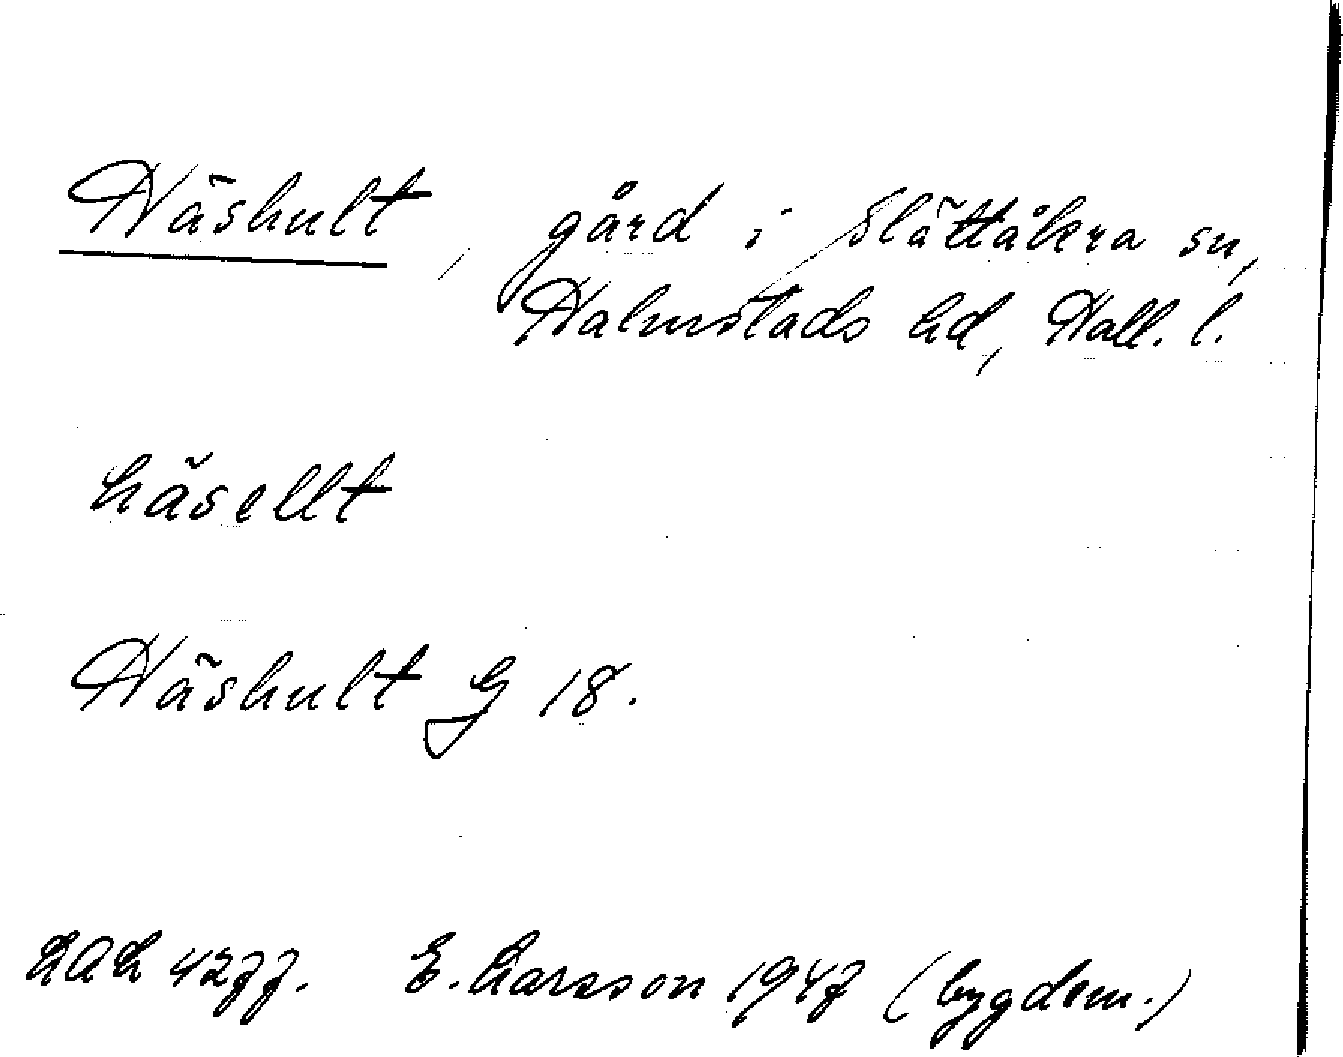 Häshult, gård i Slättåkra sn,
Halmstads hd, Hall. l.
häsellt
Häshult G 18.
LAL 4277. E. Larsson 1947 (bygdem.)